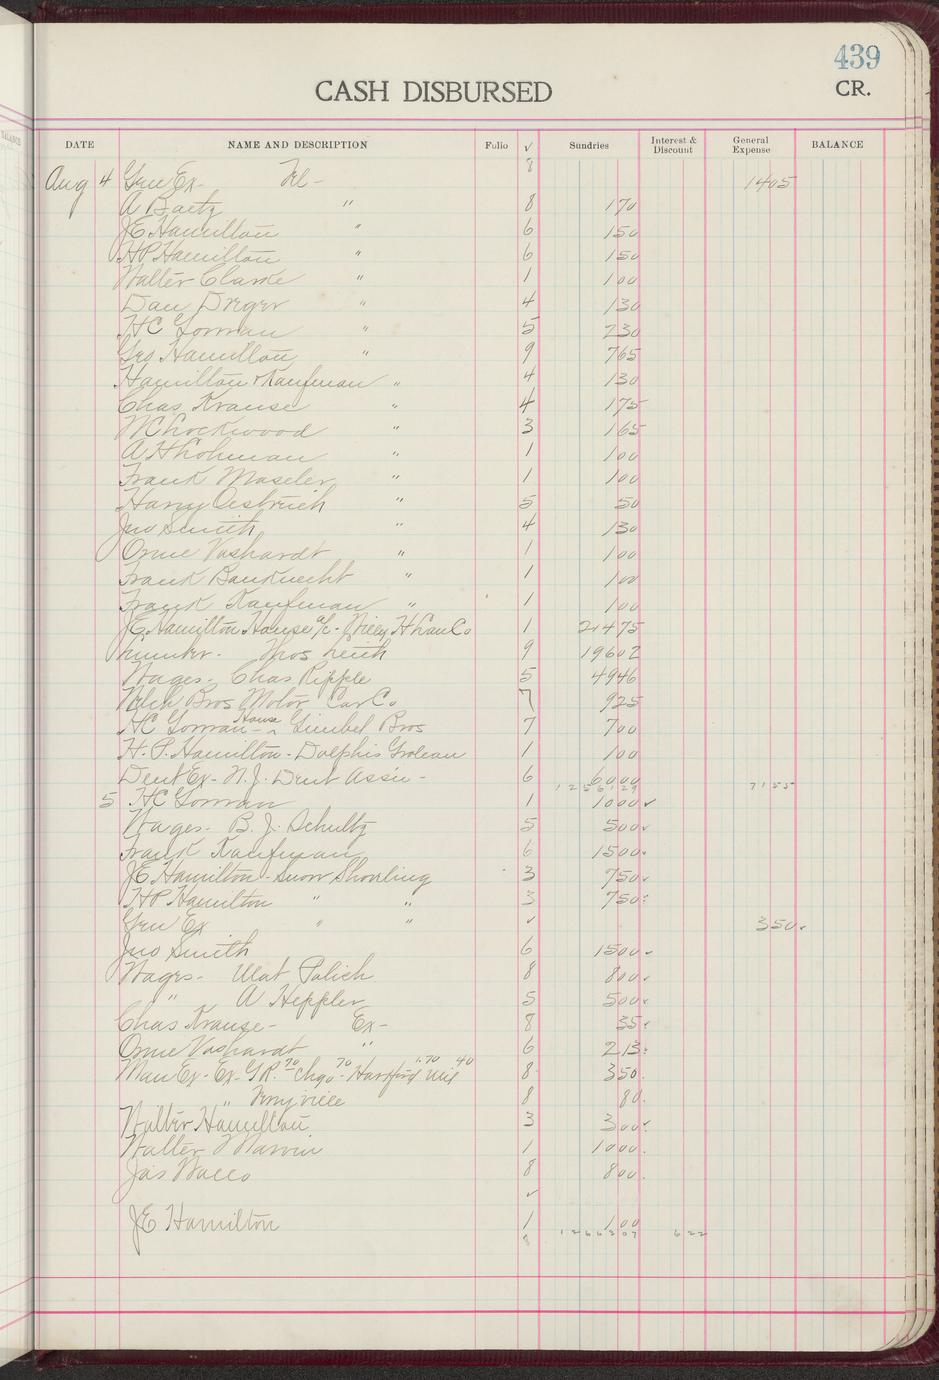 439
CASH DISBURSED
CR.
DATE NAME AND DESCRIPTION Folio √ Sundries Interest & Discount General Expense BALANCE
Aug 4 Gen Ex- Tel- 8 1405
A Baetz " 8 170
JE Hamilton " 6 150
HP Hamilton " 6 150
Walter Clarke " 1 100
Dan Dreger " 4 130
HC Gorman " 5 230
Geo Hamilton " 9 765
Hamilton & Kaufman " 4 130
Chas Krause " 4 175
WC Lockwood " 3 165
A H Lohman " 1 100
Frank Maseler " 1 100
Harry Oestreich " 5 50
Jno Smith " 4 130
Orme Voshardt " 1 100
Frank Bauknecht " 1 100
Frank Kaufman " 1 100
JE Hamilton House a/c- H Co 1 21475
Thos Leith 9 19602
Wages- Chas Ripple 5 4946
Welch Bros Motor Car Co 7 925
HC Gorman- House Gimbel Bros 7 700
H.P. Hamilton- Dolphis Groleau 1 100
Dent Ex- N.J. Dent Assn- 6 6000
1256129 7155
5 HC Gorman 1 1000 √
Wages- B.J. Schultz 5 500 √
Frank Kaufman 6 1500
JE Hamilton- Snow Shoveling 3 750
HP Hamilton " " 3 750
Gen Ex " " √ 350
Jno Smith 6 1500
Wages- Mat Polich 8 800
" A Heppler 5 500
Chas Krause- Ex- 8 35
Orme Voshardt " 6 213
Man Ex- Ex- G.R. 70 Chgo- 70 Hartford 1.70 Mil 40 8 350
" Terryville 8 80
Walter Hamilton 3 300
Walter Marvin 1 1000
Jas Wacco 8 800
√
JE Hamilton 1 100
8 1266207 622